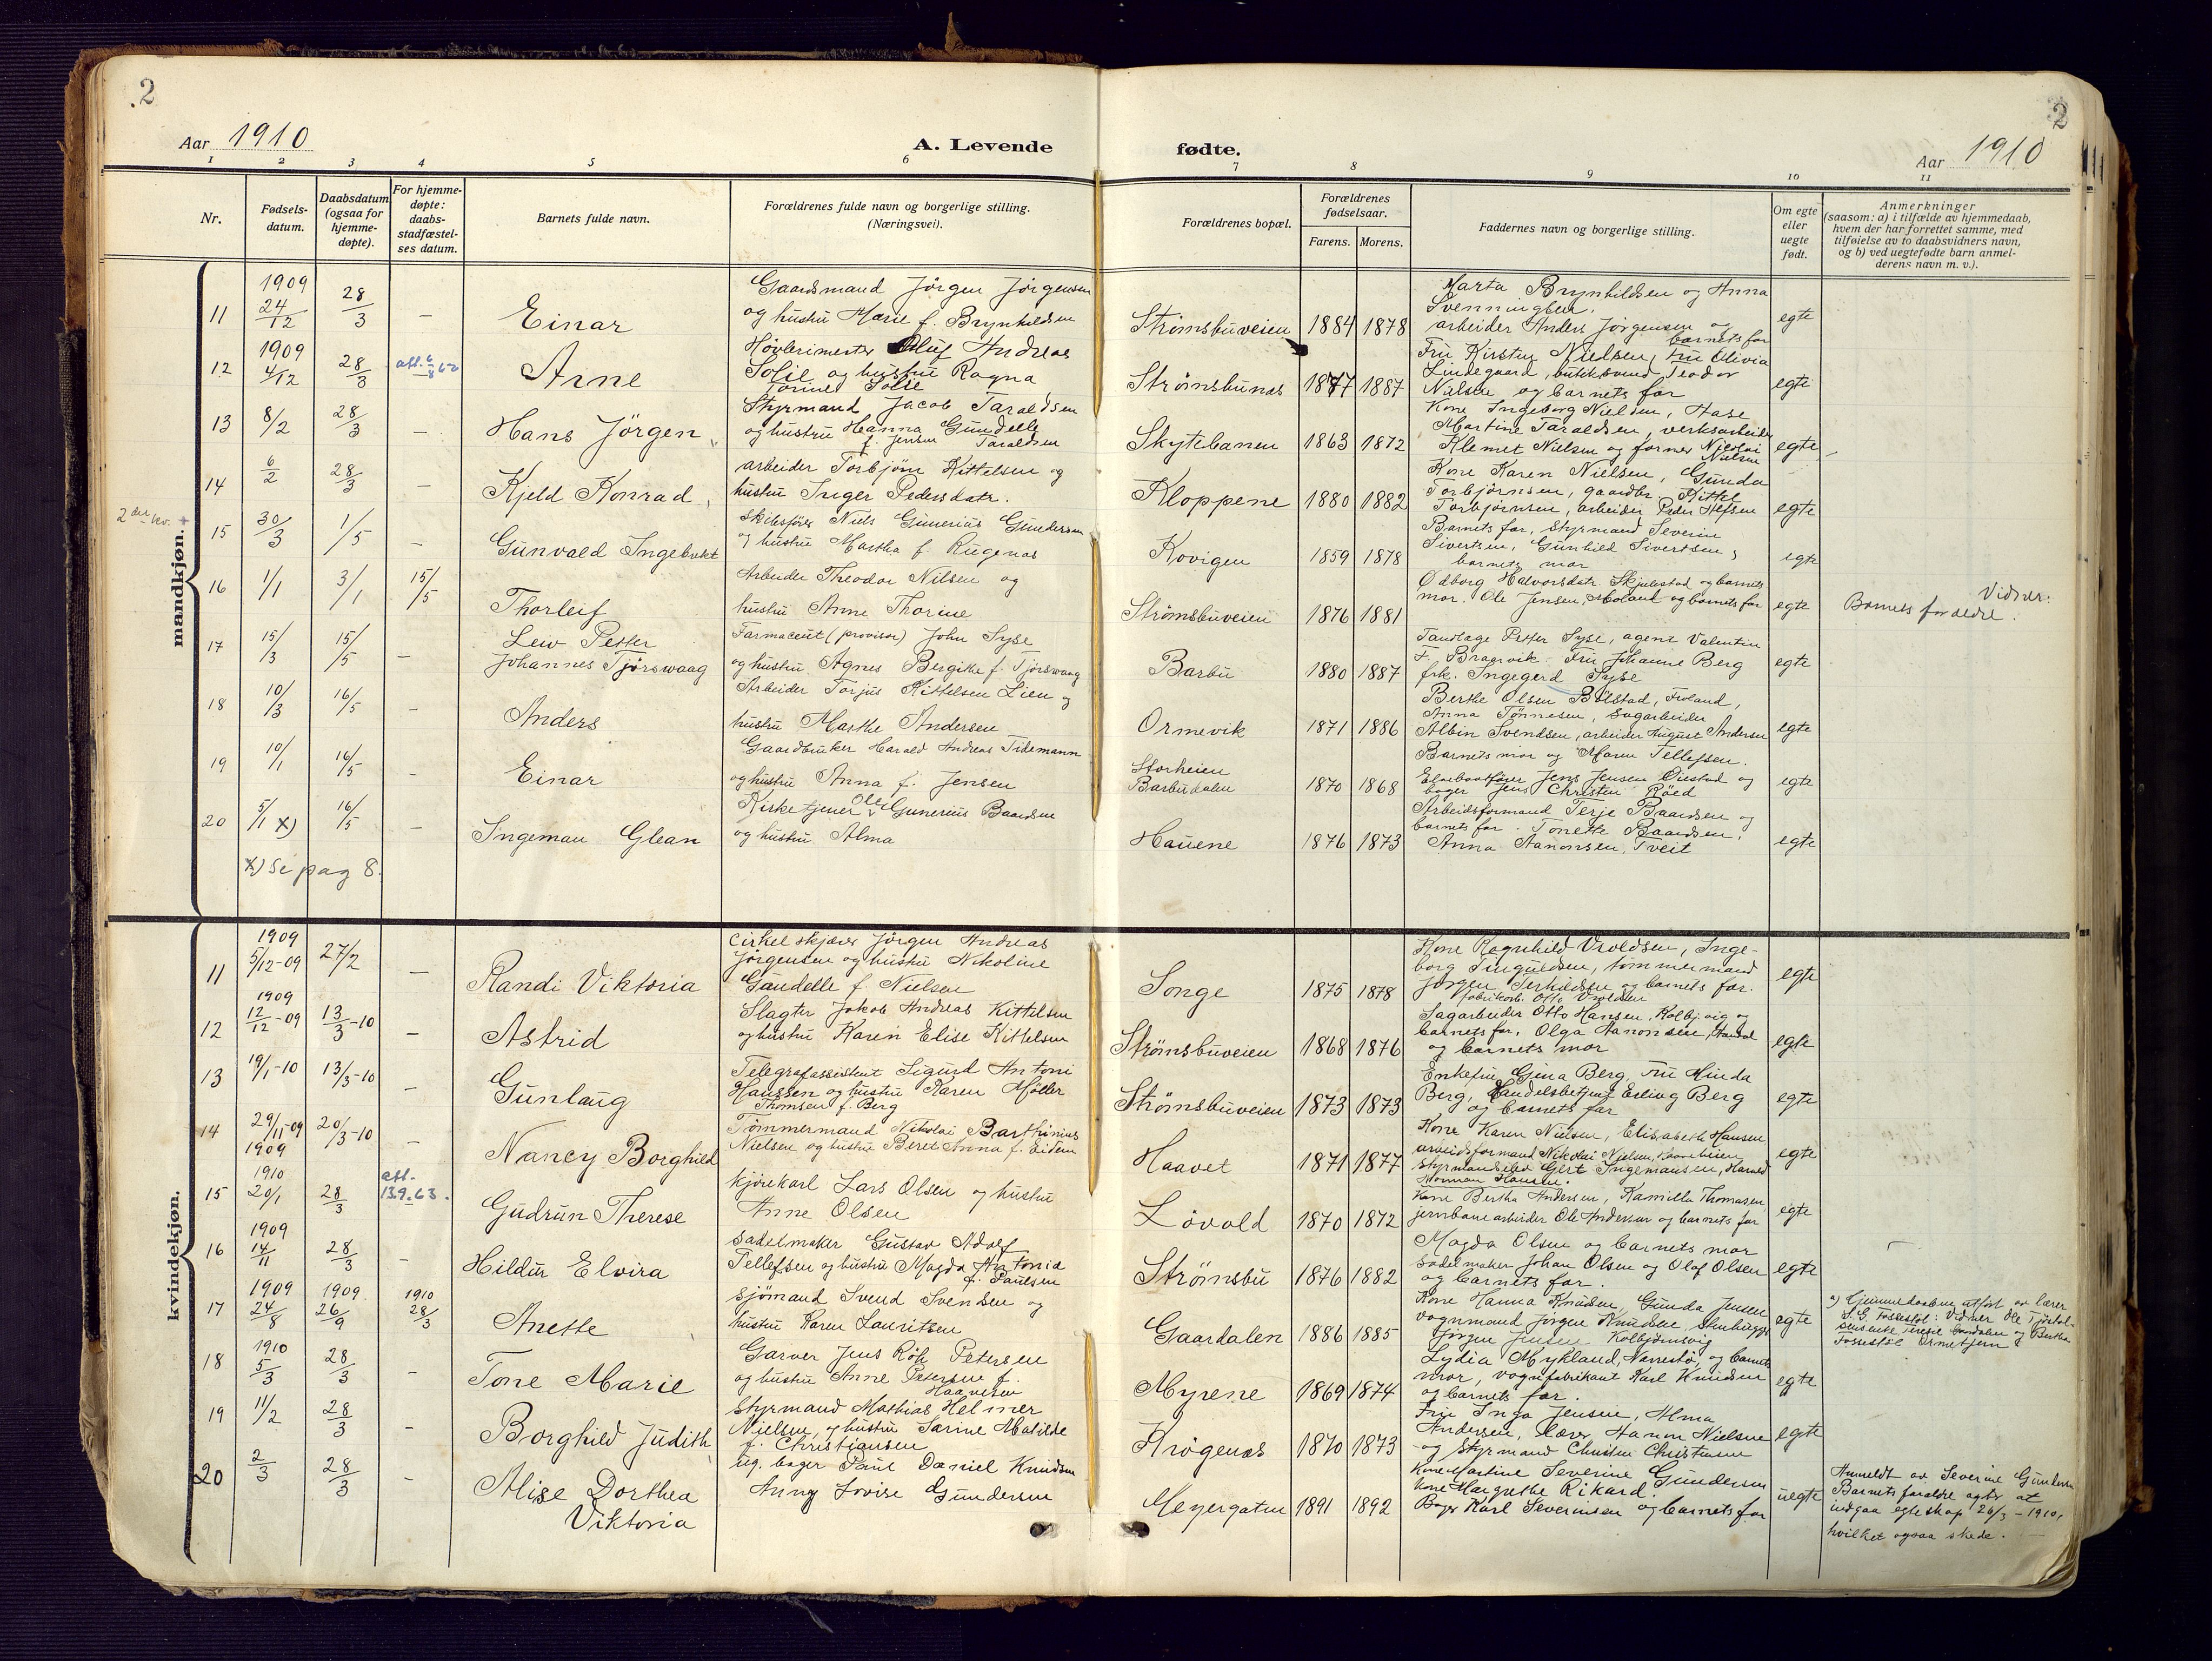 2
2
Aar 1910
A. Levende
fødte.
Aar 1910
1 2 3 4 5 6 7 8 9 10 11
Nr.
Fødsels-
datum.
Daabsdatum
(ogsaa for
hjemme-
døpte).
For hjemme-
døpte:
daabs-
stadfæstel-
ses datum.
Barnets fulde navn.
Forældrenes fulde navn og borgerlige stilling.
(Næringsvei).
Forældrenes bopæl.
Forældrenes
fødselsaar.
Farens. Morens.
Faddernes navn og borgerlige stilling.
Om egte
eller
uegte
født.
Anmerkninger
(saasom: a) i tilfælde av hjemmedaab,
hvem der har forrettet samme, med
tilføielse av to daabsvidners navn,
og b) ved uegtefødte barn anmel-
derens navn m. v.).
mandkjøn.
11 1909 24/12 28/3 – Einar
Gaardsmand Jørgen Jørgensen
og hustru Marie f. Brynhildsen
Strømsbuveien 1884 1878
Marta Brynhildsen og Anna
Svenningsen,
arbeider Anders Jørgensen og
barnets far
egte
12 1909 4/12 28/3 att. 6/8 60 Arne
Høvlerimester Oluf Andreas
Solie og hustru Ragna
Torine Solie
Strømsbunæs 1877 1887
Fru Kirsten Nielsen, Fru Olivia
Lindegaard, butiksvend Teodor
Nielsen og barnets far
egte
13 8/2 28/3 – Hans Jörgen
Styrmand Jacob Taraldsen
og hustru Hanna Gundelle
f. Jensen Taraldsen
Skytebanen 1863 1872
Kone Ingeborg Nielsen, Aase
Martine Taraldsen, verksarbeider
Klemet Nielsen og former Nicolai
Nielsen
egte
14 6/2 28/3 – Kjeld Konrad
arbeider Torbjørn Kittelsen og
hustru Inger Pedersdatr.
Kloppene 1880 1882
Kone Karen Nielsen, Gunda
Torbjørnsen, gaardbr. Kittel
Torbjørnsen, arbeider Peder Alfsen
egte
2den kv. +
15 30/3 1/5 – Gunvald Ingebrekt
Skibsfører Niels Gunerius Gundersen
og hustru Martha f. Rugenæs
Kovigen 1859 1878
Barnets far, Styrmand Severin
Sivertsen, Gunhild Sivertsen,
barnets mor
egte
16 1/1 3/1 15/5 Thorleif
Arbeider Theodor Nilsen og
hustru Anne Thorine
Strømsbuveien 1876 1881
Odborg Halvorsdatr. Skjulestad og barnets
mor. Ole Jensen, Moland og barnets far
egte
Vidner:
Barnets forældre.
17 15/3 15/5 – Leiv Petter
Johannes Tjörswaag
Farmaceut (provisor) John Syse
og hustru Agnes Bergitte f. Tjørswaag
Barbu 1880 1887
Tandlæge Petter Syse, agent Valentin
F. Braarvik. Fru Johanne Berg
frk. Ingegerd Syse
egte
18 10/3 16/5 – Anders
Arbeider Torjus Kittelsen Lien og
hustru Marthe Andersen
Ormevik 1871 1886
Berthe Olsen Bölstad, Froland,
Anna Tönnesen, Sagarbeider
Albin Svendsen, arbeider August Andersen
egte
19 10/1 16/5 – Einar
Gaardbruker Harald Andreas Tidemann
og hustru Anna f. Jensen
Storheien
Barbudalen 1870 1868
Barnets mor og Maren Tellefsen.
Elvebaatfører Jens Jensen Øiestad og
bager Jens Christen Røed
egte
20 5/1 x) 16/5 – Ingeman Glean
Kirketjener Ole Gunerius Baardsen
og hustru Alma
Hauene 1876 1873
Arbeidsformand Terje Baardsen og
barnets far. Tonette Baardsen,
Anna Aanonsen, Tveit
egte
x) Se pag 8.
kvindekjøn.
11 1909 5/12-09 27/2 – Randi Viktoria
Cirkelskjærer Jörgen Andreas
Jörgensen og hustru Nikoline
Gundelle f. Nielsen
Songe 1875 1878
Kone Ragnhild Vroldsen, Inge-
borg Tinguldsen, tømmermand
Jørgen Terkildsen og barnets far.
fabrikarb. Otto Vroldsen
egte
12 1909 12/12-09 13/3-10 – Astrid
Slagter Jakob Andreas Kittelsen
og hustru Karen Elise Kittelsen
Strømsbuveien 1868 1876
Sagarbeider Otto Hansen, Kolbj.vig og
barnets far. Olga Aanonsen,
og barnets mor
egte
13 19/1-10 13/3-10 – Gunlaug
Telegrafassistent Sigurd Antoni
Hanssen og hustru Karen Møller
Thomsen f. Berg
Strømsbuveien 1873 1873
Enkefru Gina Berg, Fru Minda
Berg, Handelsbetjent Erling Berg
og barnets far
egte
14 29/11-09 1909 20/3-10 – Nancy Borghild
Tömmermand Nikolai Barthinius
Nielsen og hustru Beret Anna f. Eidem
Haavet 1871 1877
Kone Karen Nielsen, Elisabeth Hansen,
arbeidsformand Nikolai Nielsen,
styrmandselev Gert Ingemansen, Harald
Norman Hansen.
egte
15 1910 20/1 28/3 att. 13.9.63. Gudrun Therese
kjörekarl Lars Olsen og hustru
Anne Olsen
Løvold 1870 1872
Kone Bertha Andersen, Kamilla Thomasen,
jernbanearbeider Ole Andersen og barnets far
egte
16 1909 14/11 28/3 – Hildur Elvira
Sadelmaker Gustav Adolf
Tellefsen og hustru Magda Antonia
f. Paulsen
Strømsbu 1876 1882
Magda Olsen og barnets mor
Sadelmaker Johan Olsen og Olaf Olsen
og barnets far.
egte
17 1909 24/8 1909 26/9 1910 28/3 Anette
sjömand Svend Svendsen og
hustru Karen Lauritsen
Gaardalen 1886 1885
Kone Hanna Knudsen, Gunda Jensen
vognmand Jörgen Knudsen,
Jörgen Jensen Kolbjørnsvig
egte
a) Hjemmedaaben utført av lærer
S. G. Fossestøl: Vidner Ole
Gaardalen og Bertha
Fossestøl Ormetjern
18 1910 5/3 28/3 – Tone Marie
Garver Jens Röh Petersen
og hustru Anne Petersen f.
Haavesen
Myrene 1869 1874
Lydia Mykland, Narrestø, og barnets
mor, vognfabrikant Karl Knudsen
og barnets far.
egte
19 11/2 28/3 – Borghild Judith
Styrmand Mathias Helmer
Nielsen, og hustru Sarine Matilde
f. Christiansen
Krøgenæs 1870 1873
Frk. Inga Jensen, Alma
Andersen, Lærer Hanon Nielsen
og styrmand Christen Christensen
egte
20 2/3 28/3 – Alise Dorthea
Viktoria
ug. bager Paul Daniel Knudsen
Anny Lovise Gundersen
Meyergaten 1891 1892
Kone Martine Severine Gundersen
kone Margrethe Rikard.
Bager Karl Severinsen og barnets far
uegte
Anmeldt av Severine Gundersen
Barnets forældre agter at
indgaa egteskap 26/3 – 1910,
hvilket ogsaa skede.